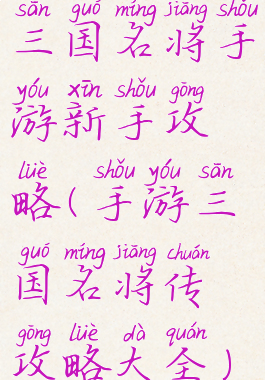 sān guó míng jiāng shǒu
三国名将手
yóu xīn shǒu gōng
游新手攻
lüè shǒu yóu sān
略(手游三
guó míng jiāng chuán
国名将传
gōng lüè dà quán
攻略大全)